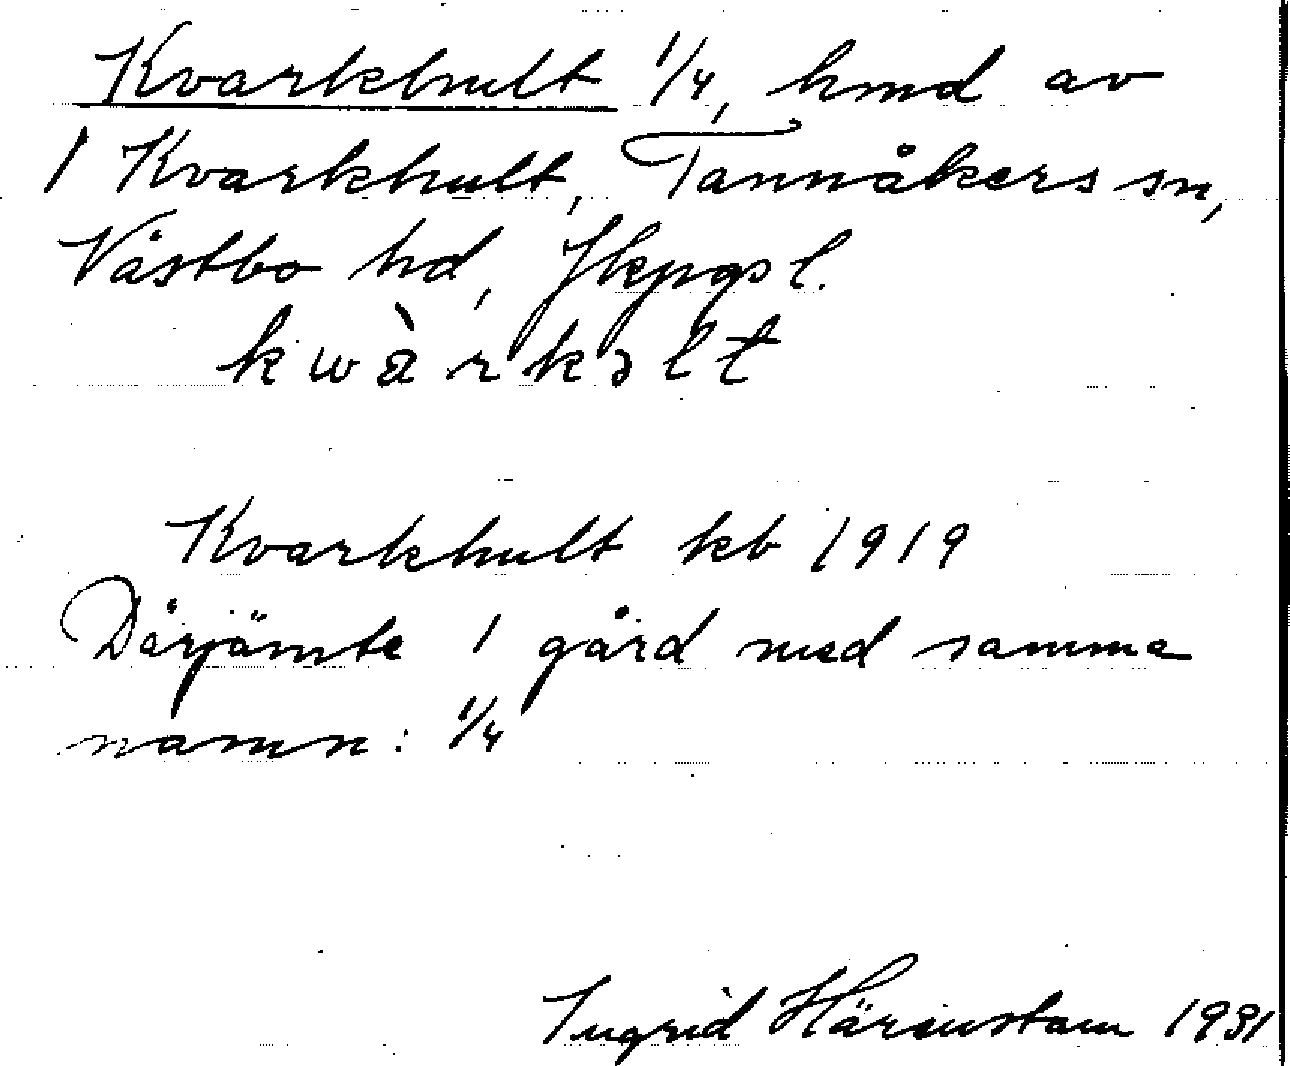 Kvarkhult 1/4, hmd av
1 Kvarkhult, Tannåkers sn,
Västbo hd, Jkpgs l.
kwàrkəlt
Kvarkhult kb 1919
Därjämte 1 gård med samma
namn: 1/4
Ingrid Härenstam 1931